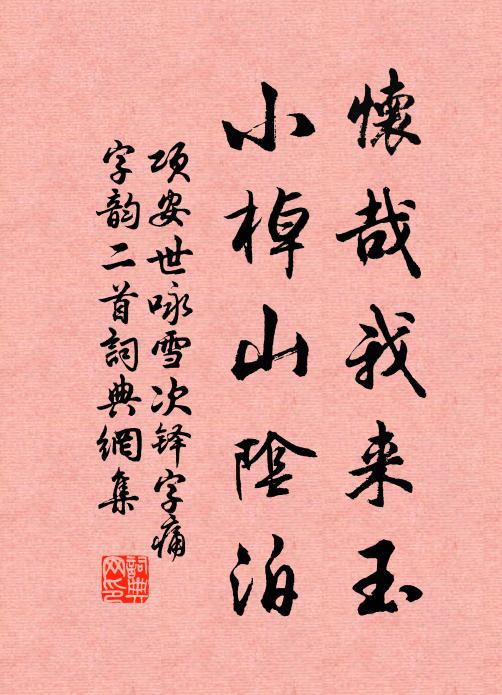 懷哉我来玉
小棹山陰泊
项安世咏雪次铎字痛
字韵二首詞典網集
詞典
网印